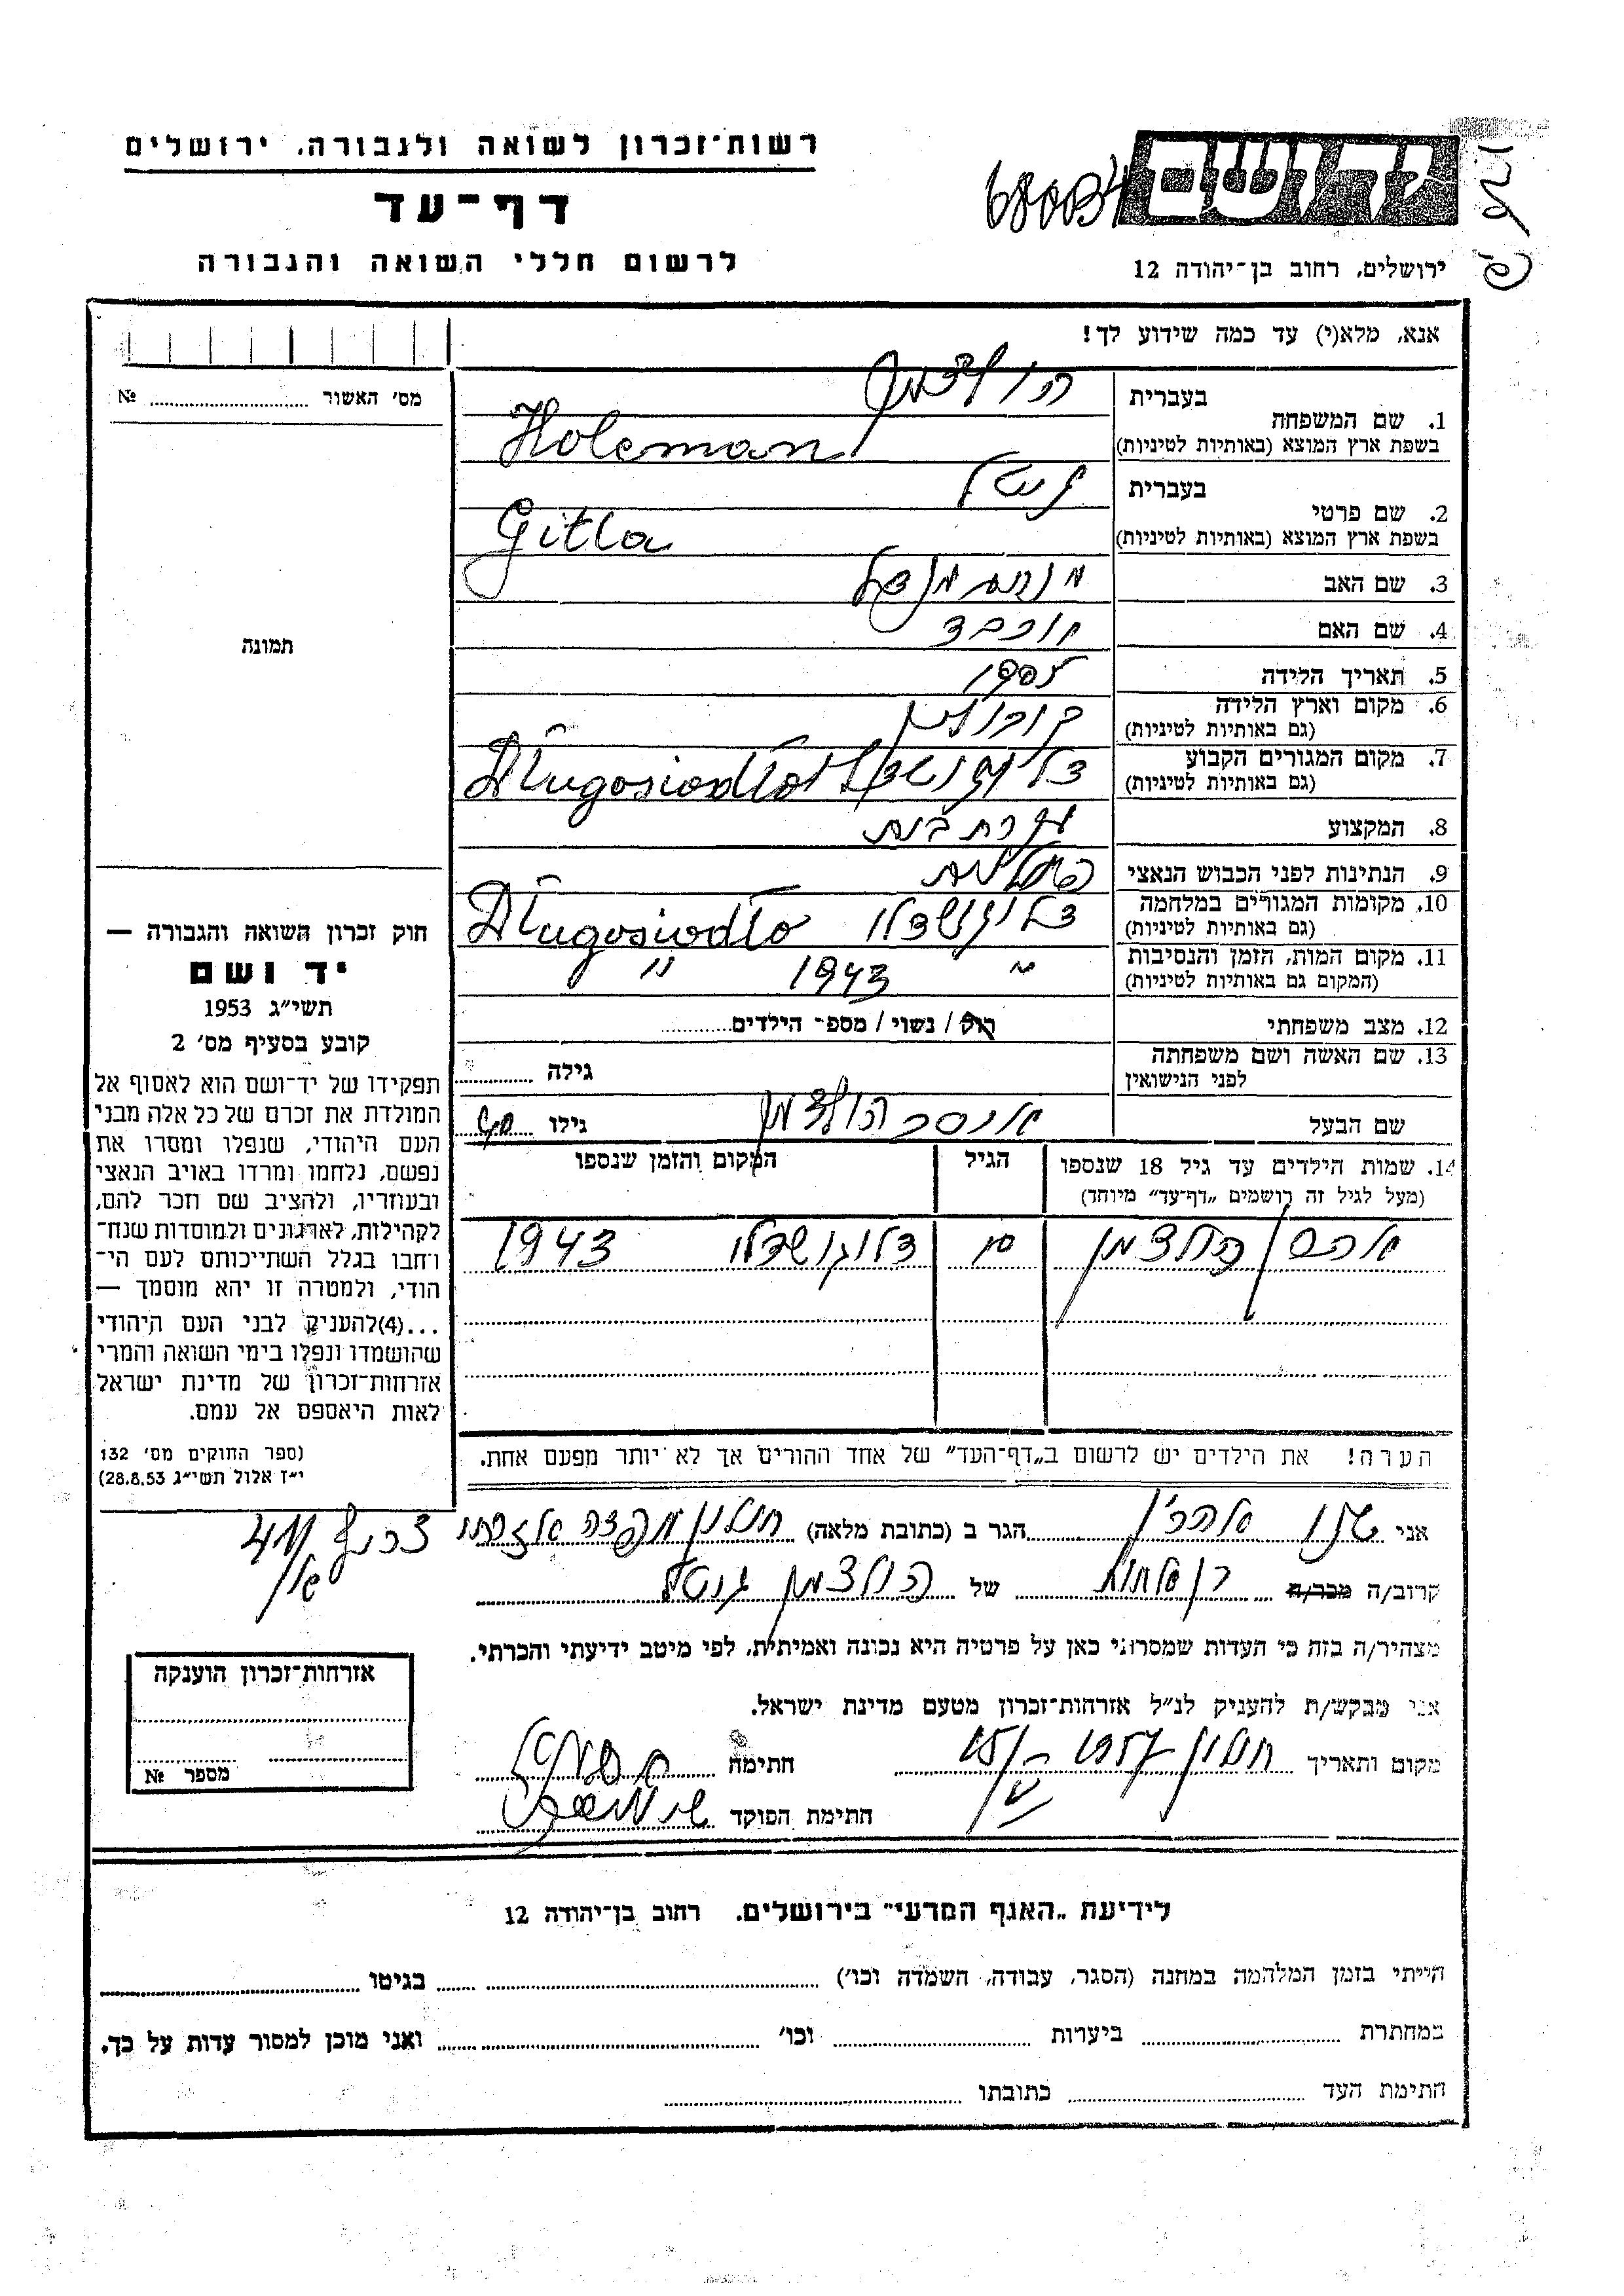 רשות־זכרון לשואה ולגבורה, ירושלים
דף־עד
לרשום חללי השואה והגבורה
יד ושם
ירושלים, רחוב בן־יהודה 12
אנא, מלא(י) עד כמה שידוע לך!
מס׳ האשור № 
תמונה
1. שם המשפחה בעברית הולצמן
בשפת ארץ המוצא (באותיות לטיניות) Holcman
2. שם פרטי בעברית גיטל
בשפת ארץ המוצא (באותיות לטיניות) Gitla
3. שם האב מנחם מנדל
4. שם האם יוכבד
5. תאריך הלידה 1905
6. מקום וארץ הלידה
(גם באותיות לטיניות)
7. מקום המגורים הקבוע Długosiodło
(גם באותיות לטיניות)
8. המקצוע עקרת בית
9. הנתינות לפני הכבוש הנאצי פולנית
10. מקומות המגורים במלחמה דלוגושדלו Długosiodło
(גם באותיות לטיניות)
11. מקום המות, הזמן והנסיבות " 1943 "
(המקום גם באותיות לטיניות)
12. מצב משפחתי רוק / נשוי / מספ־ הילדים
13. שם האשה ושם משפחתה גילה
לפני הנישואין
שם הבעל הולצמן גילו
14. שמות הילדים עד גיל 18 שנספו הגיל המקום והזמן שנספו
(מעל לגיל זה רושמים „דף־עד״ מיוחד)
הולצמן דלוגושדלו 1943
הערה! את הילדים יש לרשום ב„דף־העד״ של אחד ההורים אך לא יותר מפעם אחת.
חוק זכרון השואה והגבורה —
יד ושם
תשי״ג 1953
קובע בסעיף מס׳ 2
תפקידו של יד־ושם הוא לאסוף אל
המולדת את זכרם של כל אלה מבני
העם היהודי, שנפלו ומסרו את
נפשם, נלחמו ומרדו באויב הנאצי
ובעוזריו, ולהציב שם וזכר להם,
לקהילות, לארגונים ולמוסדות שנח־
רחבו בגלל השתייכותם לעם הי־
הודי, ולמטרה זו יהא מוסמך —
...(4)להעניק לבני העם היהודי
שהושמדו ונפלו בימי השואה והמרי
אזרחות־זכרון של מדינת ישראל
לאות היאספם אל עמם.
(ספר החוקים מס׳ 132
י״ז אלול תשי״ג 28.8.53)
אני הגר ב (כתובת מלאה) חולון
קרוב/ה מכר/ה של הולצמן גיטל
מצהיר/ה בזה כי העדות שמסרתי כאן על פרטיה היא נכונה ואמיתית, לפי מיטב ידיעתי והכרתי.
אני מבקש/ת להעניק לנ״ל אזרחות־זכרון מטעם מדינת ישראל.
מקום ותאריך חולון חתימה
חתימת הפוקד
אזרחות־זכרון הוענקה
מספר №
לידיעת „האגף המדעי״ בירושלים. רחוב בן־יהודה 12
הייתי בזמן המלחמה במחנה (הסגר, עבודה, השמדה וכו׳) בגיטו
במחתרת ביערות וכו׳ ואני מוכן למסור עדות על כך.
חתימת העד כתובתו